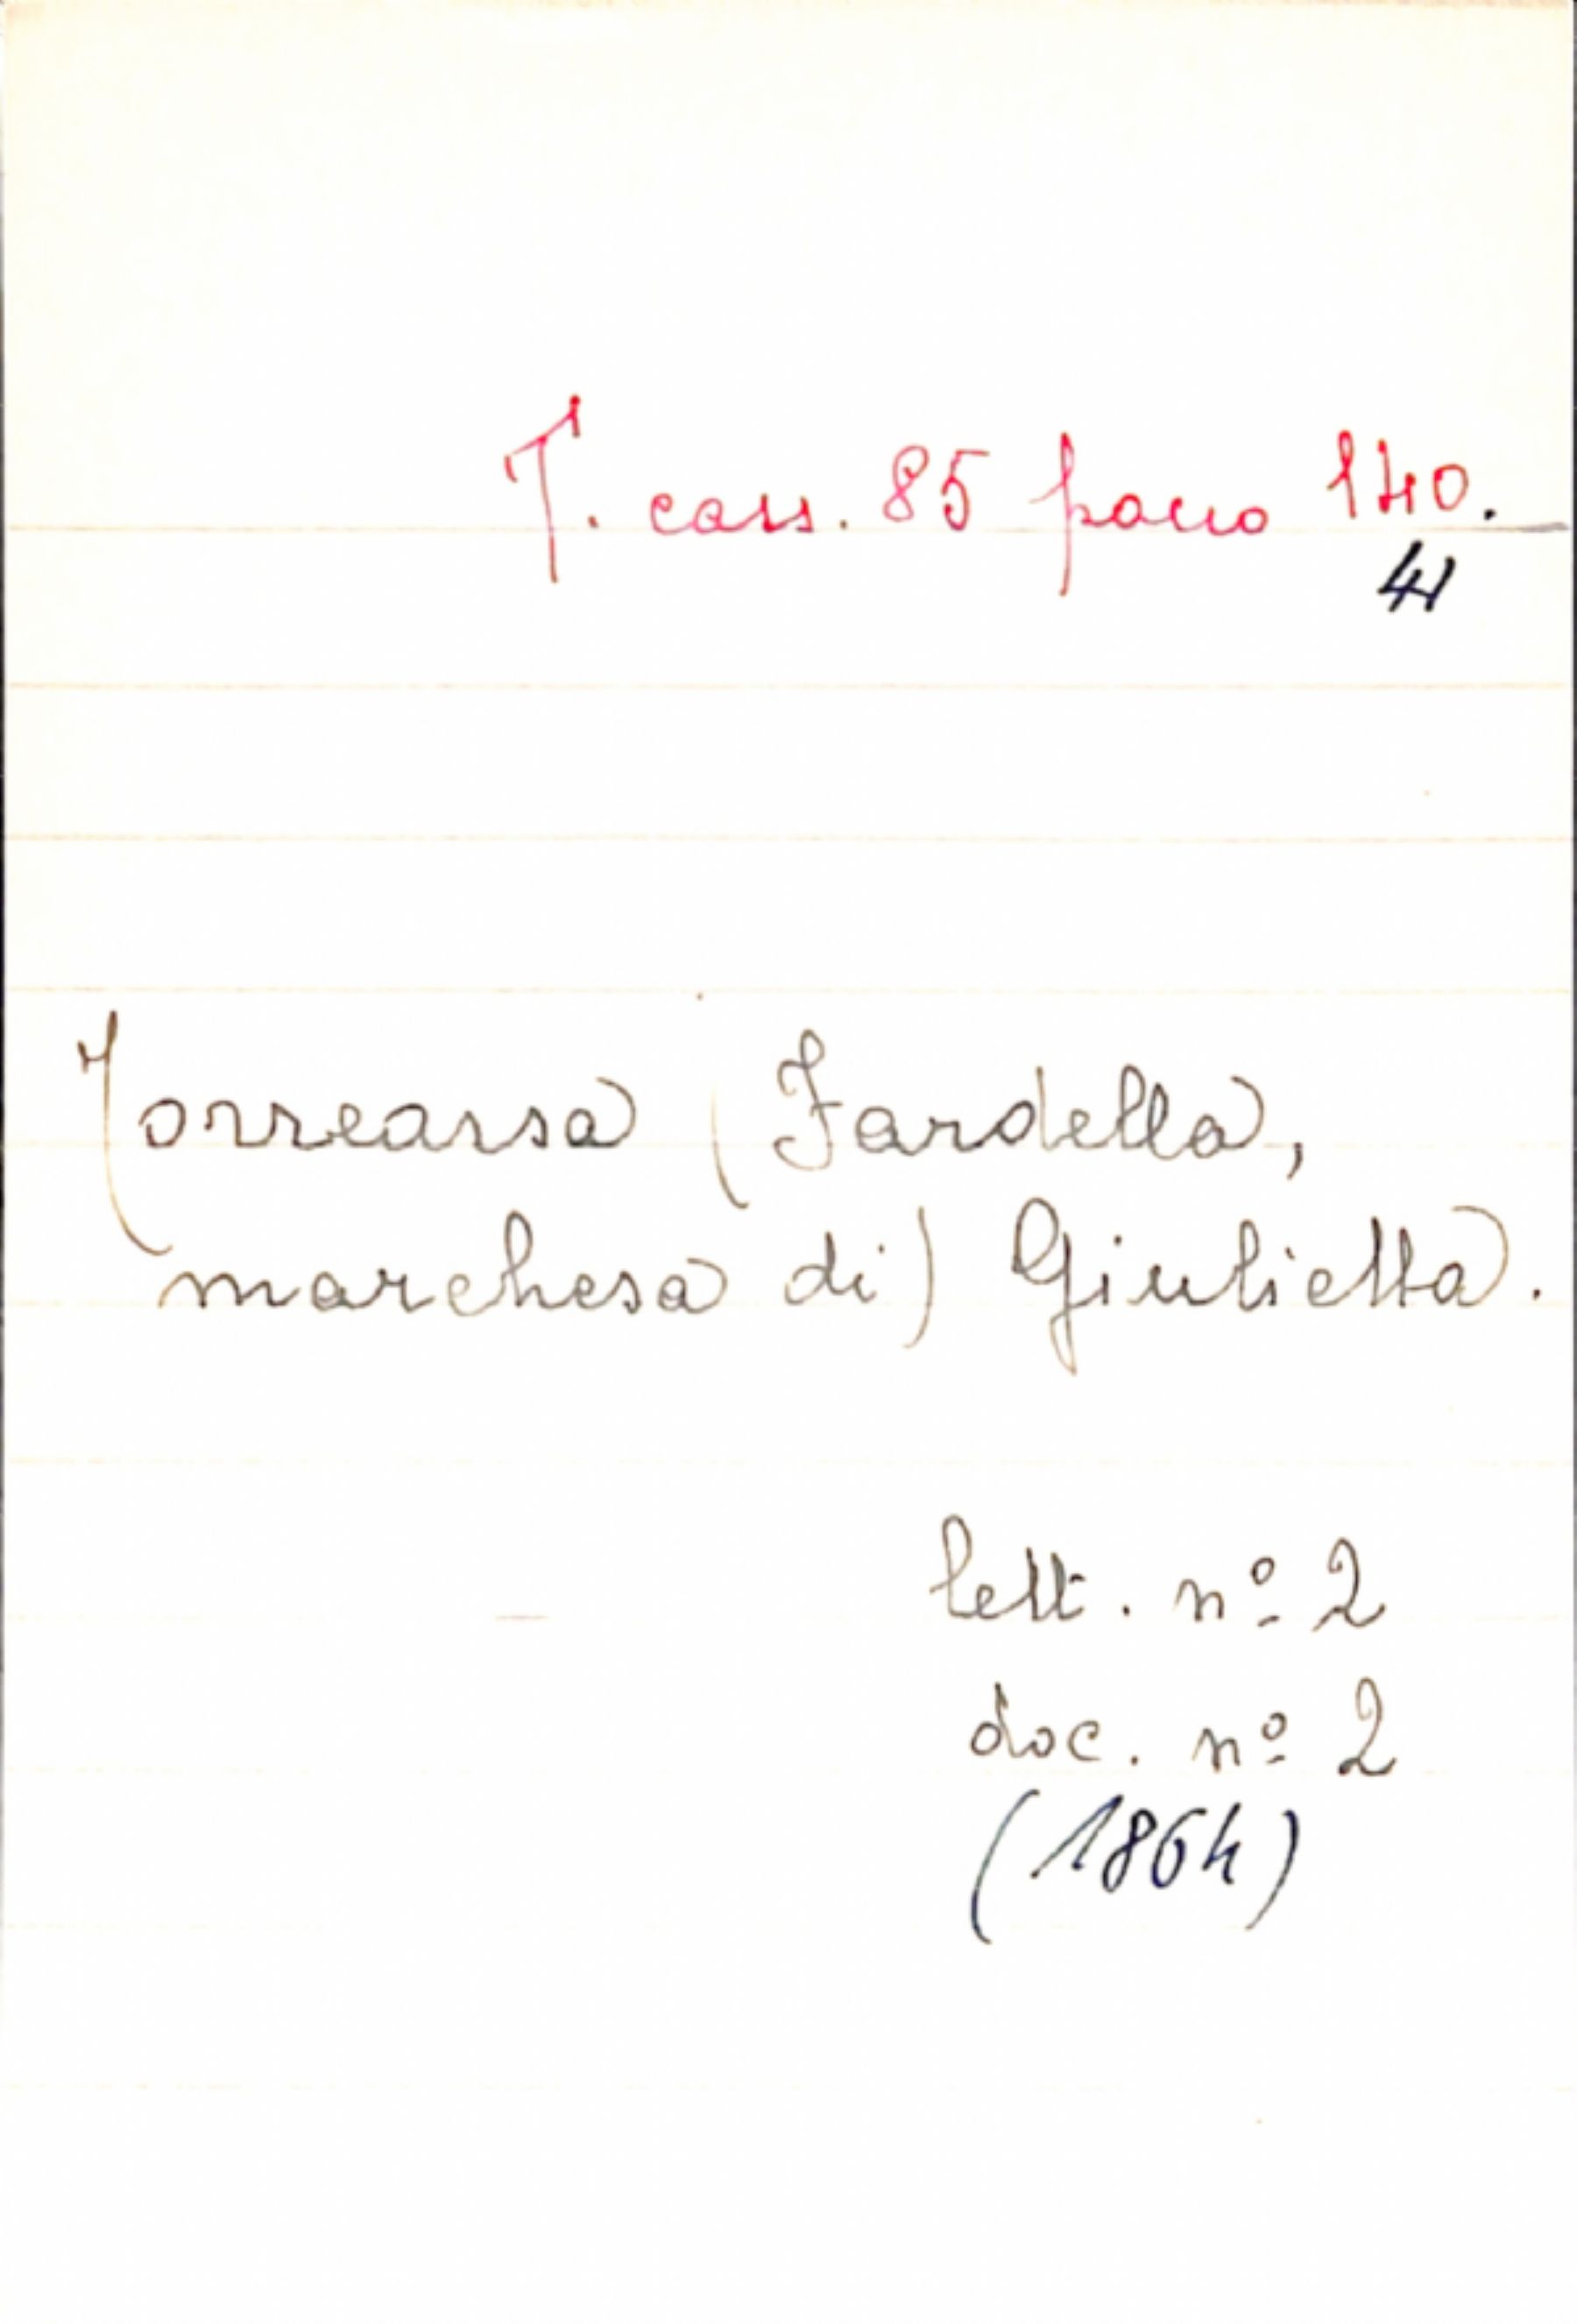 T. cass. 85 pacco 140.
41
Torrearsa (Fardella,
marchesa di) Giulietta.
lett. nº 2
doc. nº 2
(1864)